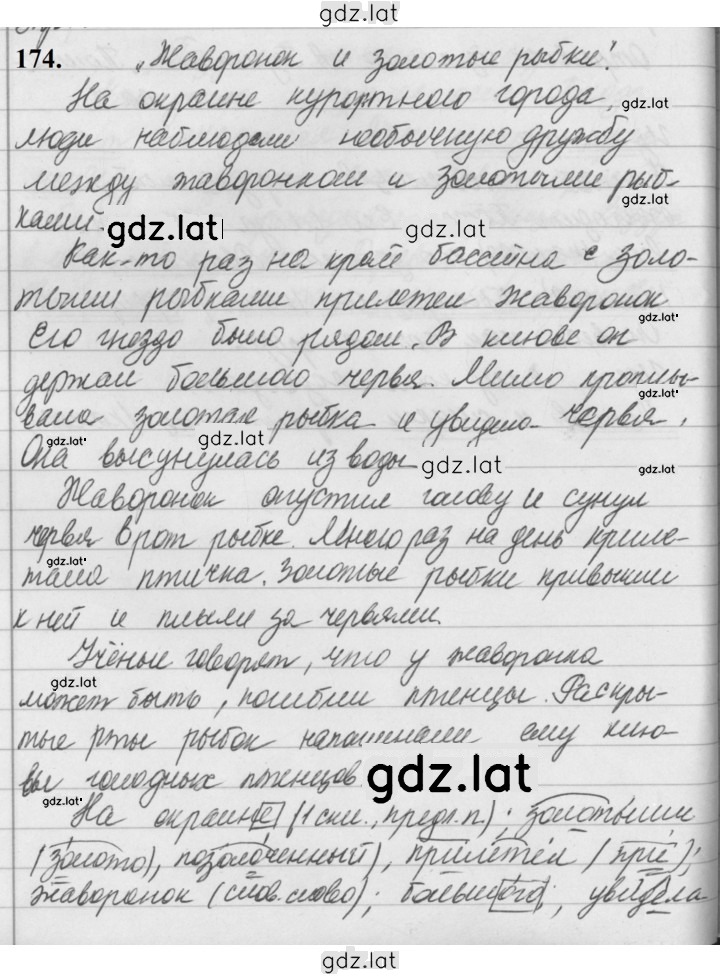 gdz.lat
174. „Жаворонок и золотые рыбки".
На окраине курортного города
gdz.lat
люди наблюдали необычную дружбу
между жаворонком и золотыми рыб-
gdz.lat
ками.
gdz.lat
gdz.lat
Как-то раз на край бассейна с золо-
тыми рыбками прилетел жаворонок
gdz.lat
Его гнездо было рядом. В клюве он
gdz.lat
держал большого червя. Мимо проплы-
вала золотая рыбка и увидела червя.
gdz.lat
gdz.lat
Она высунулась из воды
gdz.lat
gdz.lat
Жаворонок опустил голову и сунул
червя в рот рыбке. Много раз на день приле-
gdz.lat
gdz.lat
тала птичка. Золотые рыбки привыкли
к ней и плыли за червями.
Учёные говорят, что у жаворонка
gdz.lat
может быть, погибли птенцы. Раскры-
gdz.lat
тые рты рыбок напоминали ему клю-
вы голодных птенцов
gdz.lat
gdz.lat
На окраине (1 скл., предл.п.); золотыми
(золото), позолоченный), прилетел (при);
жаворонок (слов.слово); большого; увидела
gdz.lat